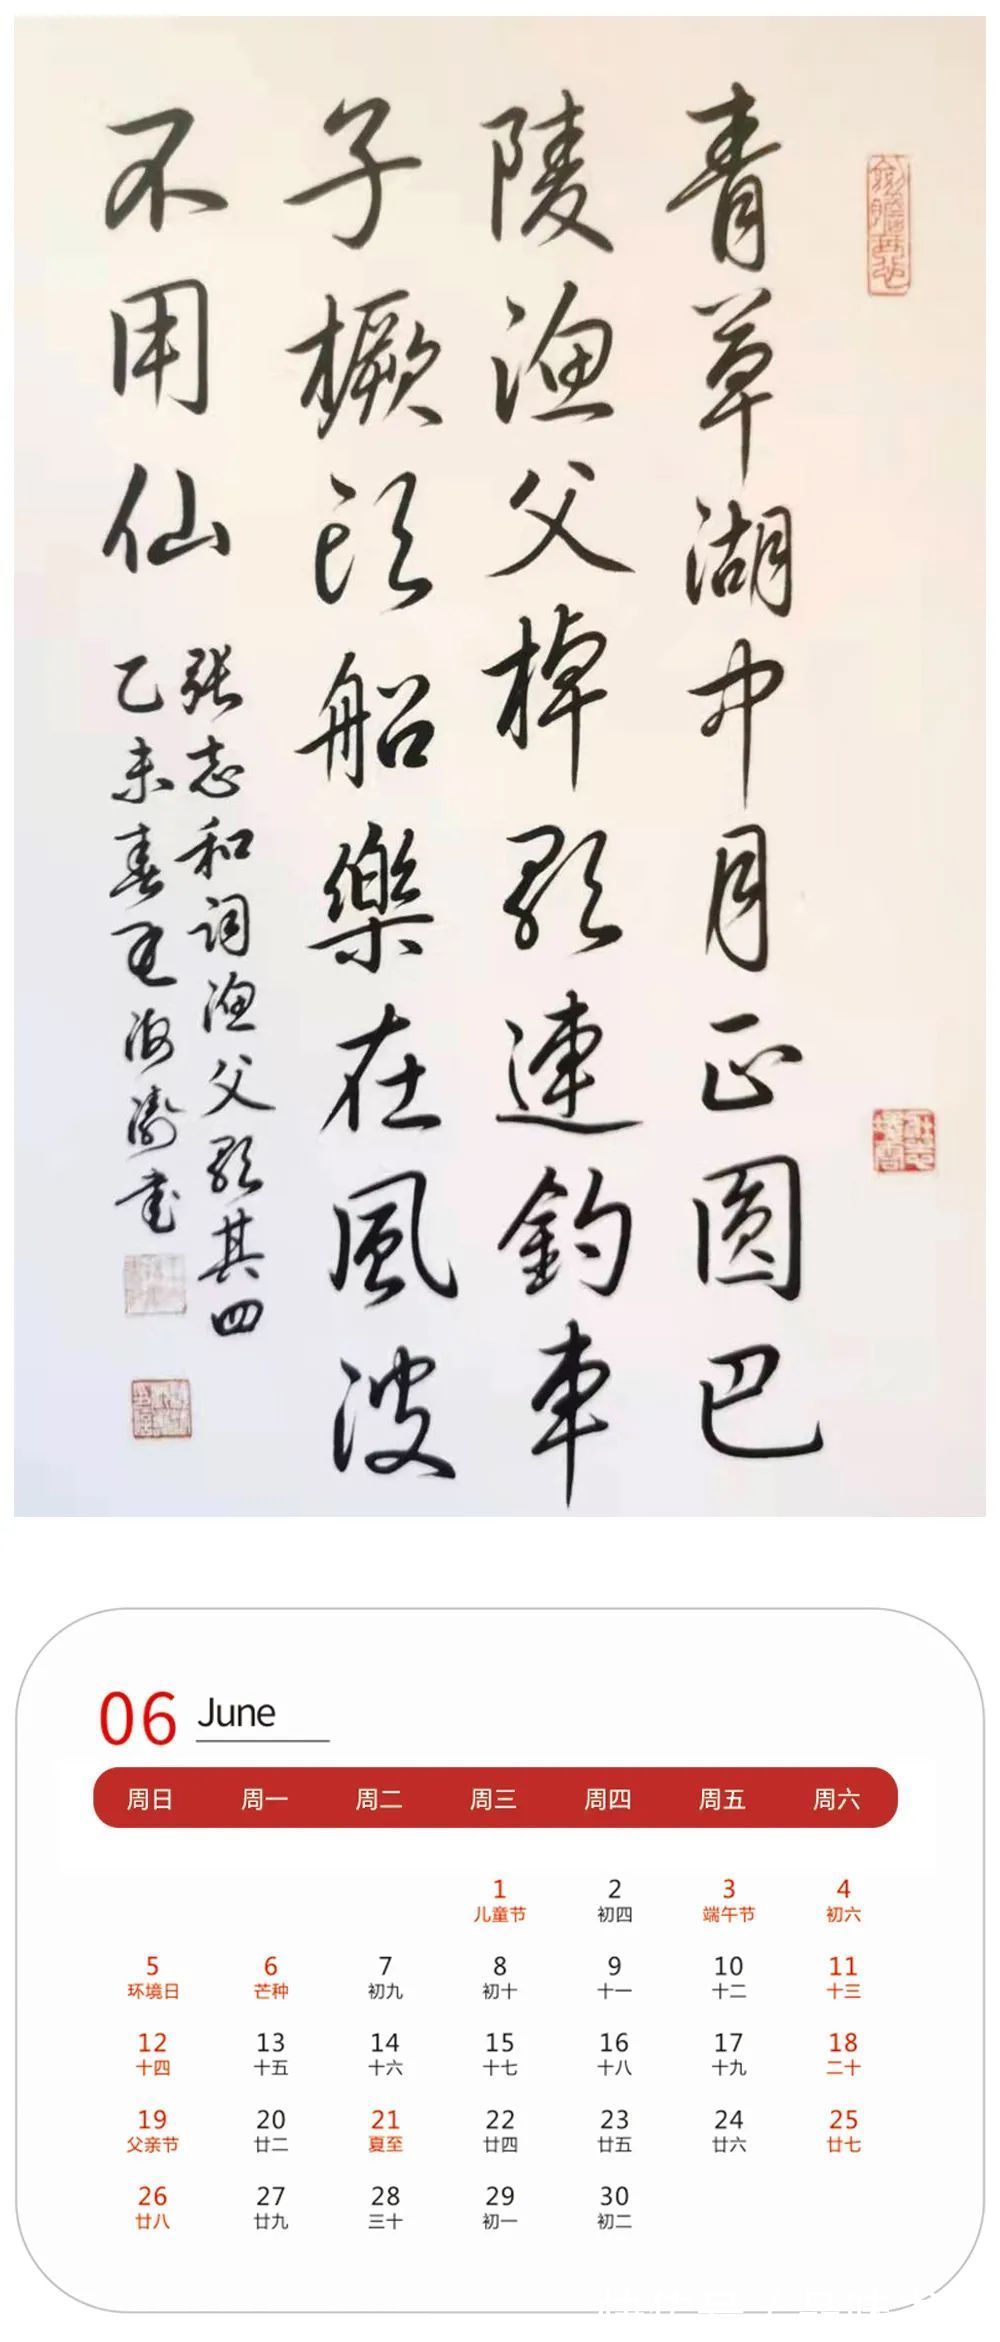 青草湖中月正圆巴
陵渔父棹歌連釣車
子橛头船樂在風波
不用仙
张志和词渔父歌其四
乙未春王海勝书
06 June
周日 周一 周二 周三 周四 周五 周六
1 2 3 4
儿童节 初四 端午节 初六
5 6 7 8 9 10 11
环境日 芒种 初九 初十 十一 十二 十三
12 13 14 15 16 17 18
十四 十五 十六 十七 十八 十九 二十
19 20 21 22 23 24 25
父亲节 廿二 夏至 廿四 廿五 廿六 廿七
26 27 28 29 30
廿八 廿九 三十 初一 初二